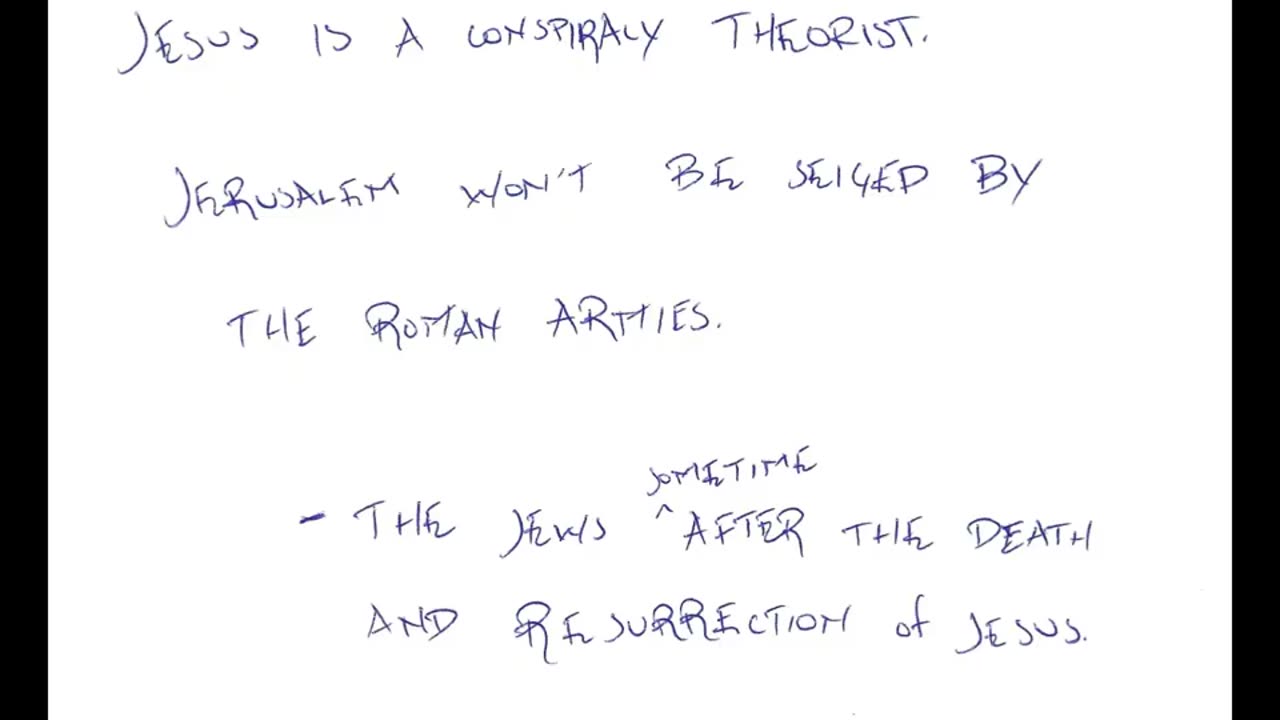 JESUS IS A CONSPIRACY THEORIST.
JERUSALEM WON'T BE SEIGED BY
THE ROMAN ARMIES.
SOMETIME
- THE JEWS ^ AFTER THE DEATH
AND RESURRECTION of JESUS.